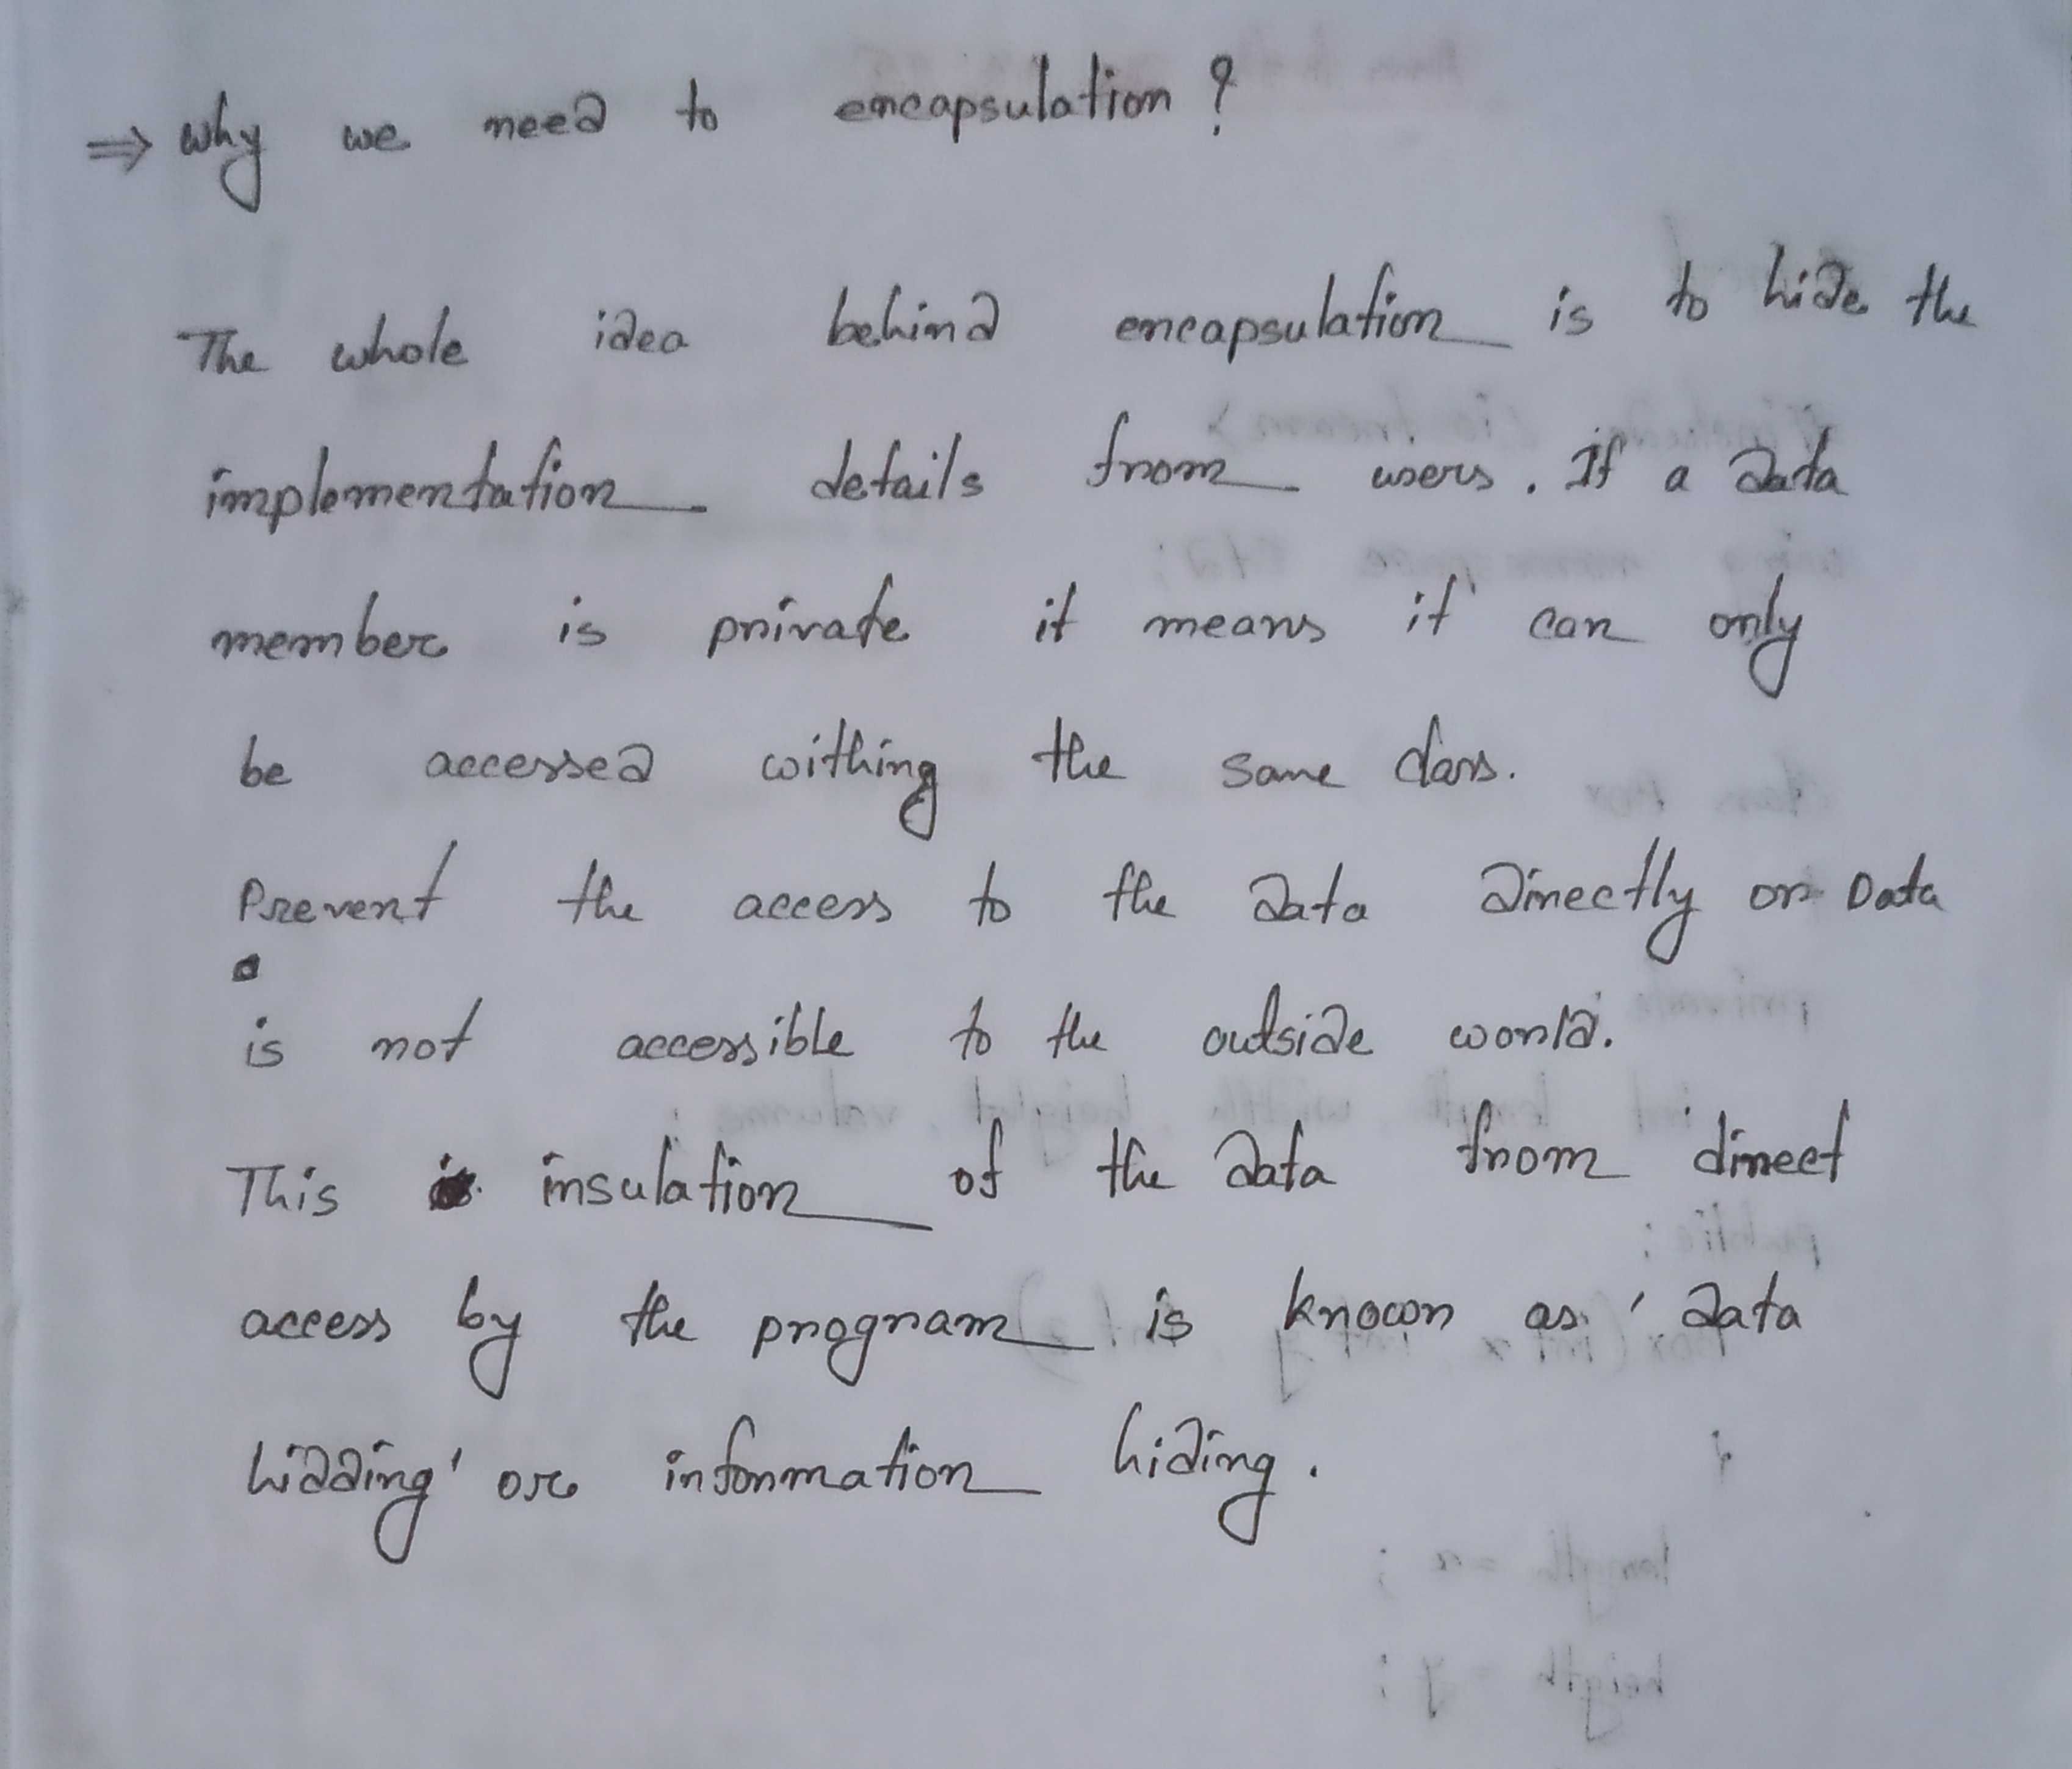 ⇒ Why we need to encapsulation?
The whole idea behind encapsulation is to hide the
implementation details from users. If a data
member is private it means it can only
be accessed withing the same class.
Prevent the access to the data directly or Data
is not accessible to the outside world.
This insulation of the data from direct
access by the program is known as 'data
hidding' or information hiding.